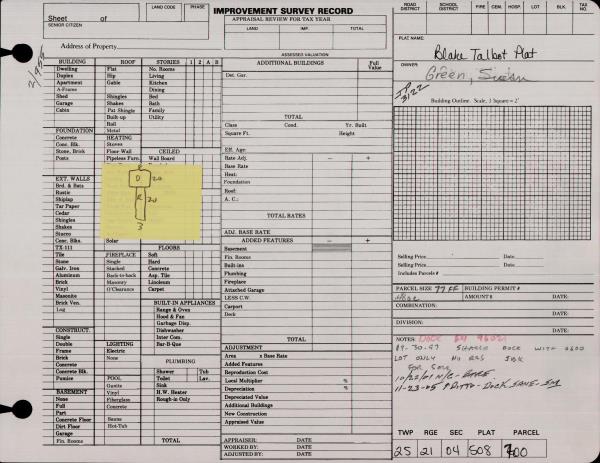 LAND CODE
PHASE
IMPROVEMENT SURVEY RECORD
Sheet of
SENIOR CITIZEN
APPRAISAL REVIEW FOR TAX YEAR
LAND IMP. TOTAL
ASSESSED VALUATION
Address of Property
ROAD DISTRICT SCHOOL DISTRICT FIRE CEM. HOSP. LOT BLK. TAX NO.
PLAT NAME:
Blake Talbot Plat
OWNER:
Green, Susan
Building Outline. Scale, 1 Square = 2'
BUILDING ROOF STORIES 1 2 A B
Dwelling Flat No. Rooms
Duplex Hip Living
Apartment Gable Kitchen
A-Frame Dining
Shed Shingles Bed
Garage Shakes Bath
Cabin Pat Shingle Family
Built-up Utility
Roll
FOUNDATION Metal
Concrete HEATING
Conc. Blk. Stoves CEILED
Stone, Brick Floor Wall Wall Board
Posts Pipeless Furn.
D 20
R 20
3
EXT. WALLS
Brd. & Bats
Rustic
Shiplap
Tar Paper
Cedar
Shingles
Shakes
Stucco
Conc. Blks. Solar
TX-111 FLOORS
Tile FIREPLACE Soft
Stone Single Hard
Galv. Iron Stacked Concrete
Aluminum Back-to-back Asp. Tile
Brick Masonry Linoleum
Vinyl O'Clearance Carpet
Masonite
Brick Ven. BUILT-IN APPLIANCES
Log Range & Oven
Hood & Fan
Garbage Disp.
CONSTRUCT. Dishwasher
Single Inter Com.
Double LIGHTING Bar-B-Que
Frame Electric
Brick None
Concrete PLUMBING
Concrete Blk. Shower Tub
Pumice POOL Toilet Lav.
Gunite Sink
BASEMENT Vinyl H.W. Heater
None Fiberglass Rough-in Only
Full Concrete
Part
Concrete Floor Sauna
Dirt Floor Hot-Tub
Garage
Fin. Rooms TOTAL
ADDITIONAL BUILDINGS Full Value
Det. Gar.
TOTAL
Class Cond. Yr. Built
Square Ft. Height
Eff. Age
Rate Adj. – +
Base Rate
Heat:
Foundation
Roof:
A. C.:
TOTAL RATES
ADJ. BASE RATE
ADDED FEATURES – +
Basement
Fin. Rooms
Built-ins
Plumbing
Fireplace
Attached Garage
LESS C.W.
Carport
Deck
TOTAL
ADJUSTMENT
Area x Base Rate
Added Features
Reproduction Cost
Local Multiplier %
Depreciation %
Depreciated Value
Additional Buildings
New Construction
Appraised Value
APPRAISER: DATE
WORKED BY: DATE
ADJUSTED BY: DATE
Selling Price Date
Selling Price Date
Includes Parcels #
PARCEL SIZE 77 FF BUILDING PERMIT #
AMOUNT $ DATE:
COMBINATION: DATE:
DIVISION: DATE:
NOTES: DOCK
SHARED DOCK WITH
LOT ONLY
TWP RGE SEC PLAT PARCEL
25 21 04 508 700